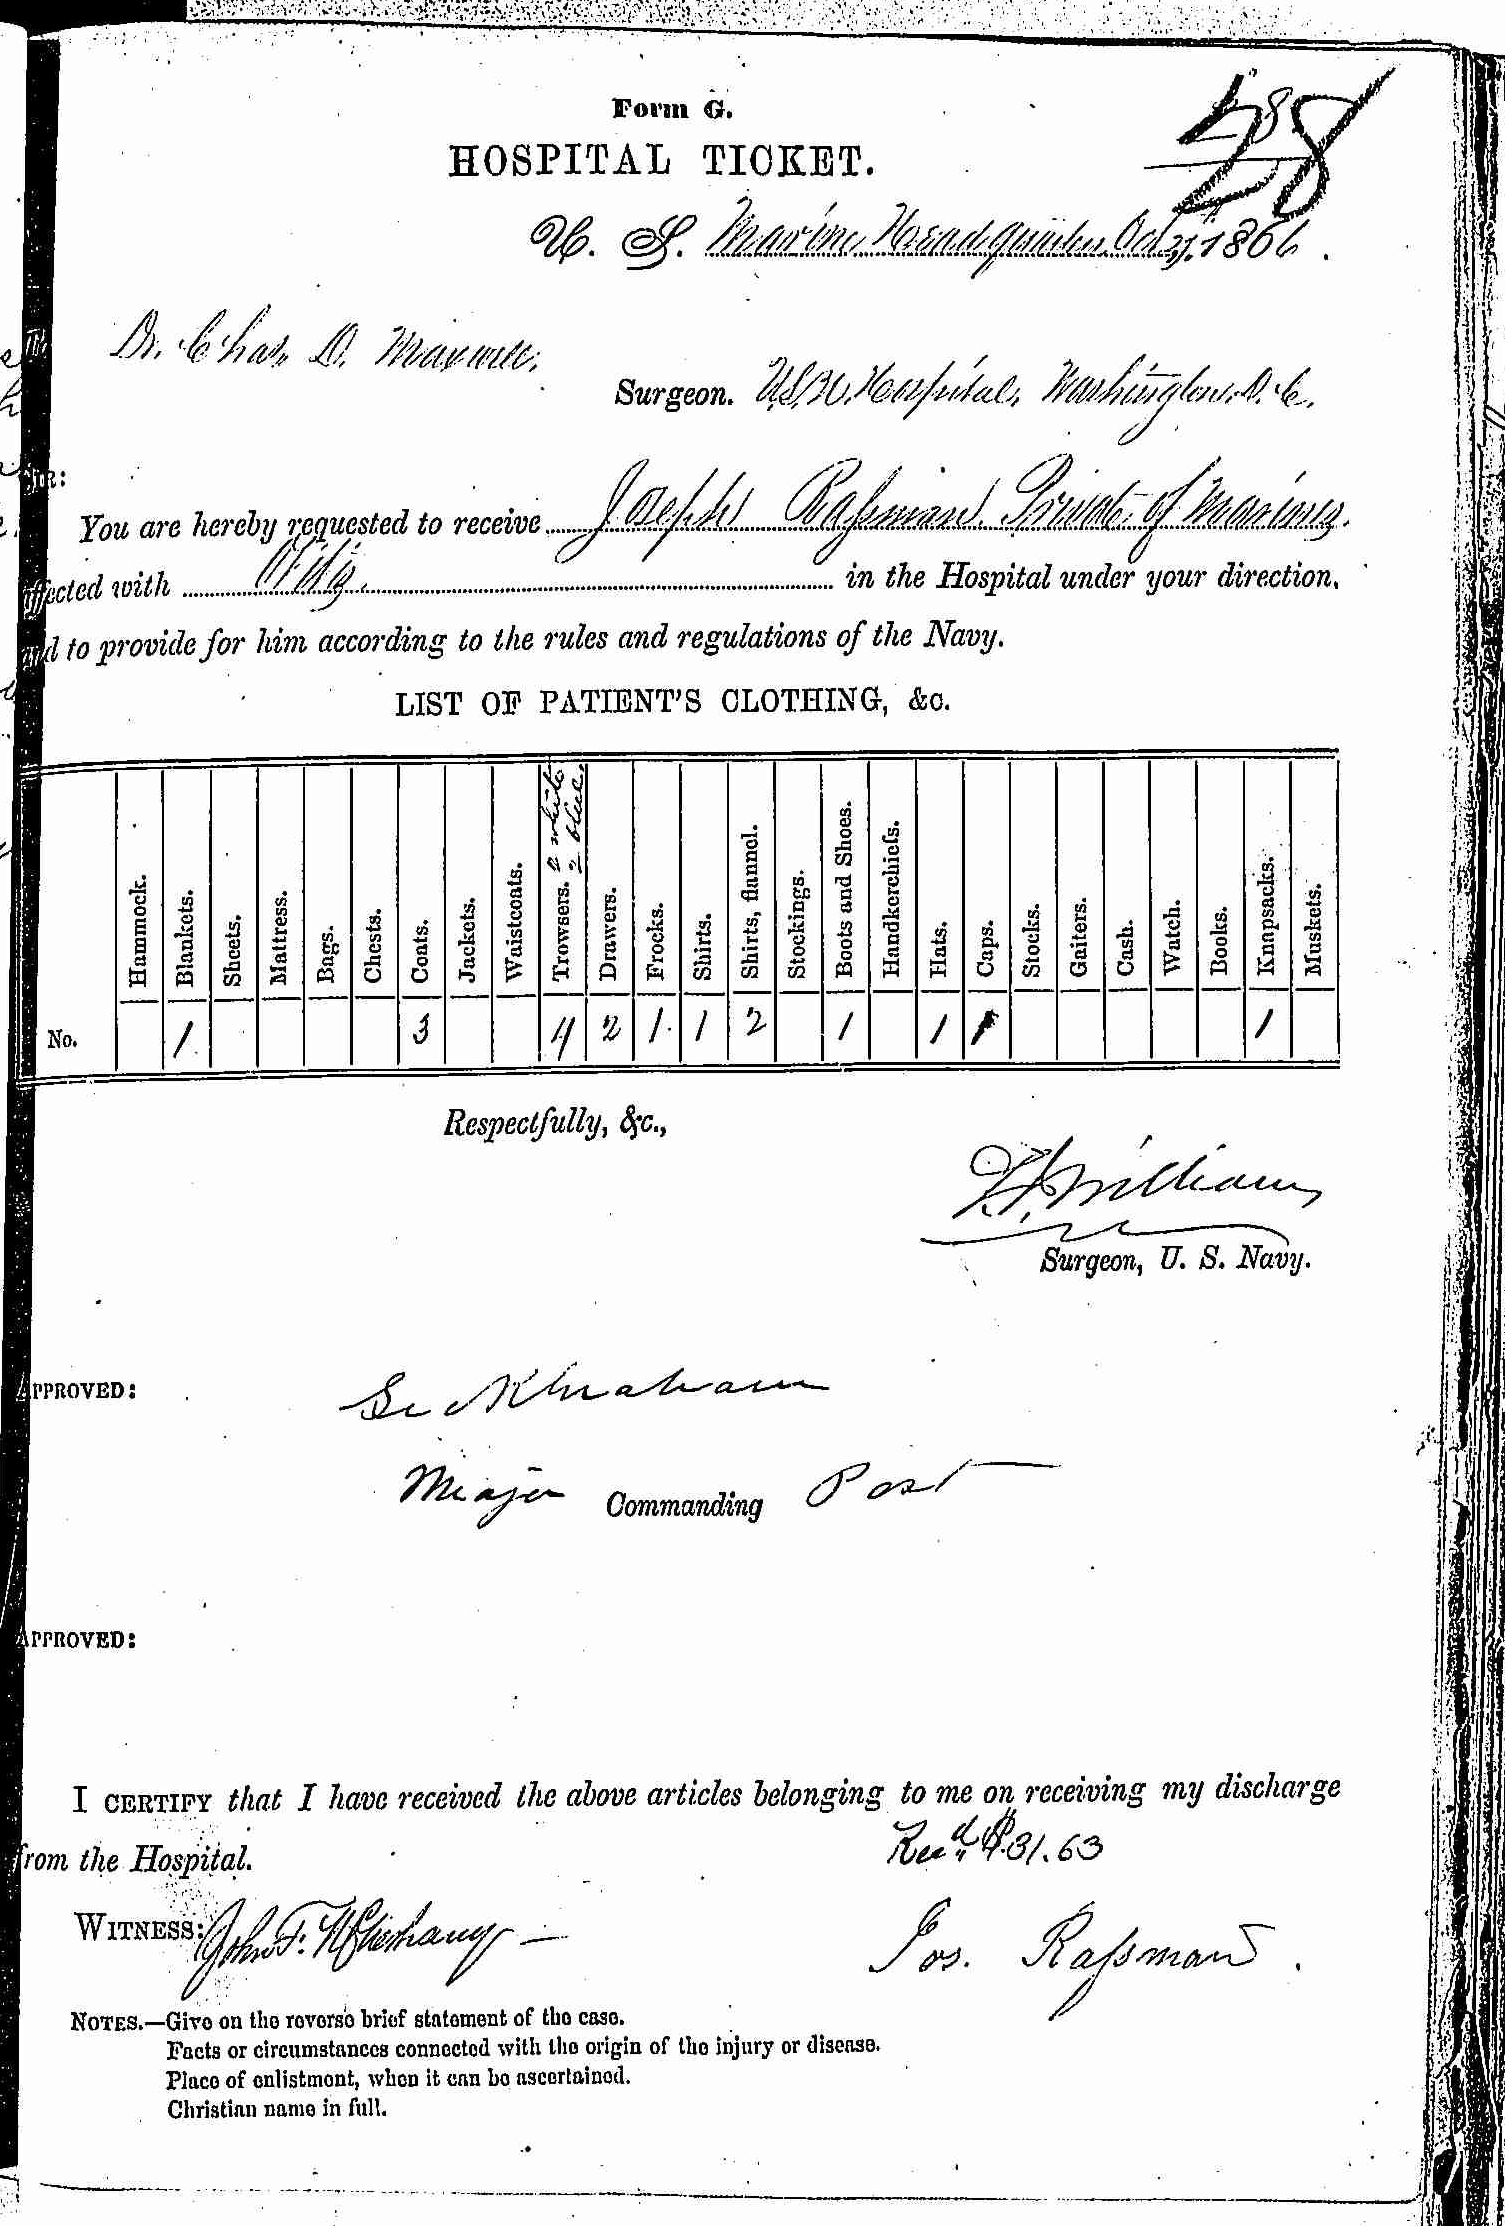 Form G.
HOSPITAL TICKET.
58
U. S. Marine Headquarters, Oct 1866.
Dr. Chas. D. Maxwell,
Surgeon. U.S.N. Hospital, Washington, D. C.
SIR:
You are hereby requested to receive Joseph Raſsman Private of Marines
affected with in the Hospital under your direction,
and to provide for him according to the rules and regulations of the Navy.
LIST OF PATIENT'S CLOTHING, &c.
Hammock. Blankets. Sheets. Mattress. Bags. Chests. Coats. Jackets. Waistcoats. Trowsers. 2 white 2 blue. Drawers. Frocks. Shirts. Shirts, flannel. Stockings. Boots and Shoes. Handkerchiefs. Hats. Caps. Stocks. Gaiters. Cash. Watch. Books. Knapsacks. Muskets.
No. 1 3 4 2 1 1 2 1 1 1 1
Respectfully, &c.,
Williams
Surgeon, U. S. Navy.
APPROVED:
Graham
Major Commanding Post
APPROVED:
I CERTIFY that I have received the above articles belonging to me on receiving my discharge
from the Hospital. Recd. $31.63
WITNESS: John F. Jos. Raſsman.
NOTES.—Give on the reverse brief statement of the case.
Facts or circumstances connected with the origin of the injury or disease.
Place of enlistment, when it can be ascertained.
Christian name in full.